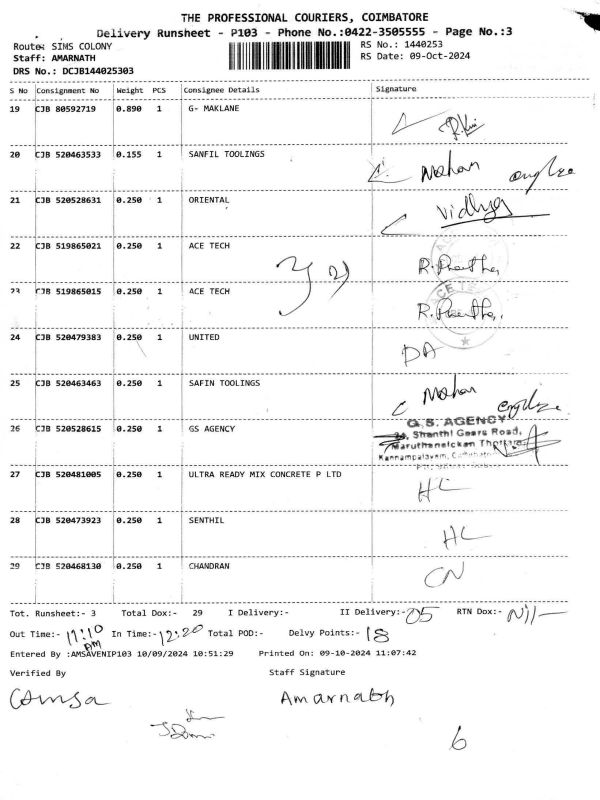 THE PROFESSIONAL COURIERS, COIMBATORE
Delivery Runsheet - P103 - Phone No.:0422-3505555 - Page No.:3
Route: SIMS COLONY RS No.: 1440253
Staff: AMARNATH RS Date: 09-Oct-2024
DRS No.: DCJB144025303
S No Consignment No Weight PCS Consignee Details Signature
19 CJB 80592719 0.890 1 G- MAKLANE
20 CJB 520463533 0.155 1 SANFIL TOOLINGS Mohan
21 CJB 520528631 0.250 1 ORIENTAL Vidhya
22 CJB 519865021 0.250 1 ACE TECH
23 CJB 519865015 0.250 1 ACE TECH
24 CJB 520479383 0.250 1 UNITED DA
25 CJB 520463463 0.250 1 SAFIN TOOLINGS Mohan
26 CJB 520528615 0.250 1 GS AGENCY G.S. AGENCY
Shanthi Gears Road,
Maruthanaickan
Kannampalayam,
27 CJB 520481005 0.250 1 ULTRA READY MIX CONCRETE P LTD HC
28 CJB 520473923 0.250 1 SENTHIL HC
29 CJB 520468130 0.250 1 CHANDRAN CN
Tot. Runsheet:- 3 Total Dox:- 29 I Delivery:- II Delivery:- 05 RTN Dox:- Nil
Out Time:- 11:10 AM In Time:- 12:20 Total POD:- Delvy Points:- 18
Entered By :AMSAVENIP103 10/09/2024 10:51:29 Printed On: 09-10-2024 11:07:42
Verified By Staff Signature
Amarnath
6